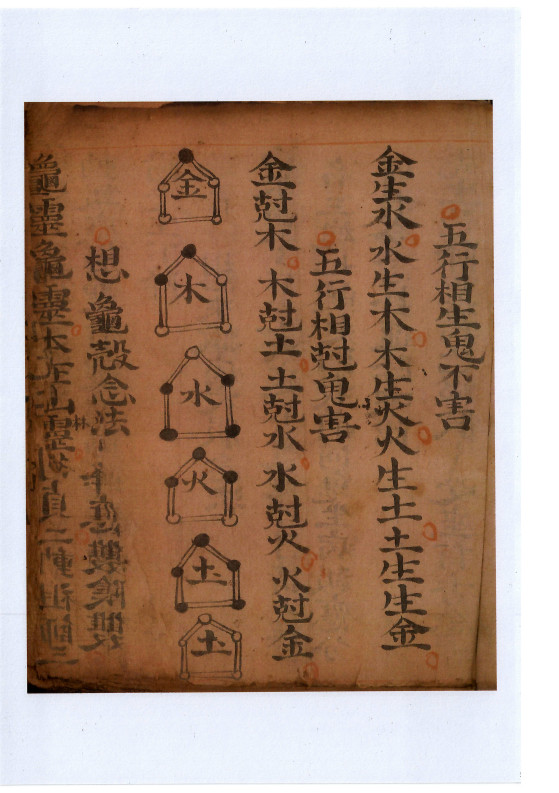 五行相生鬼不害
金生水 水生木 木生火 火生土 土生生金
五行相尅鬼害
金尅木 木尅土 土尅水 水尅火 火尅金
金
木
水
火
土
土
想龜殼念法 雙陰
龜靈龜靈本在山 祖師三